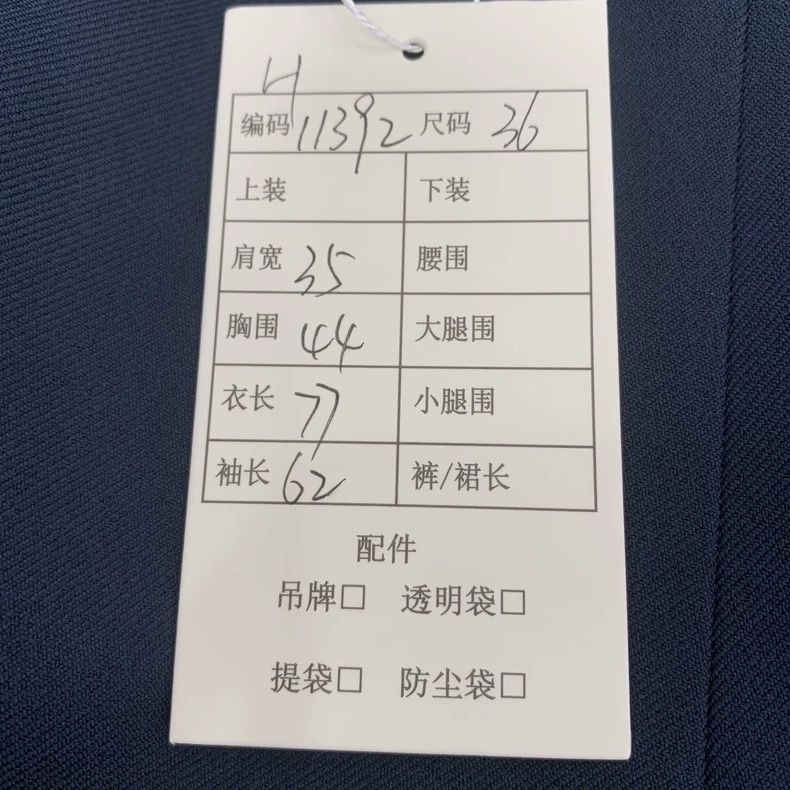 H
编码 11392 尺码 36
上装 下装
肩宽 35 腰围
胸围 44 大腿围
衣长 77 小腿围
袖长 62 裤/裙长
配件
吊牌□ 透明袋□
提袋□ 防尘袋□